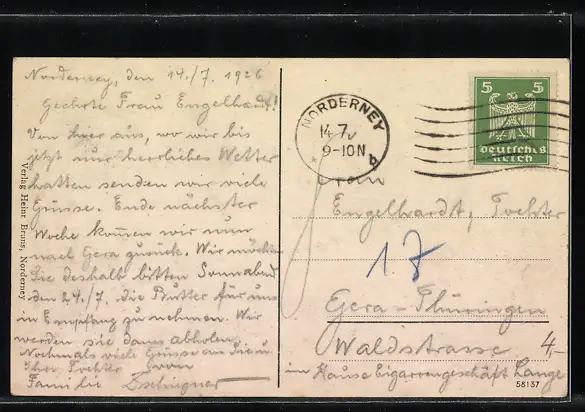 Norderney, den 14./7. 1926
Geehrte Frau Engelhardt!
Von hier aus, wo wir bis
jetzt nur herrliches Wetter
hatten senden wir viele
Grüsse. Ende nächster
Woche kommen wir nun
nach Gera zurück. Wir möchten
Sie deshalb bitten Sonnabend
den 24./7. die Butter für uns
in Empfang zu nehmen. Wir
werden sie dann abholen.
Nochmals viele Grüsse an Sie u.
Ihre Tochter von
Familie
Verlag Heinr. Bruns, Norderney
NORDERNEY
14 7
9-10 N
b
5 5
Deutsches
Reich
Frau
Engelhardt, Tochter
17
Gera-Thüringen
Waldstrasse
4,-
im Hause Cigarrengeschäft Lange
58137